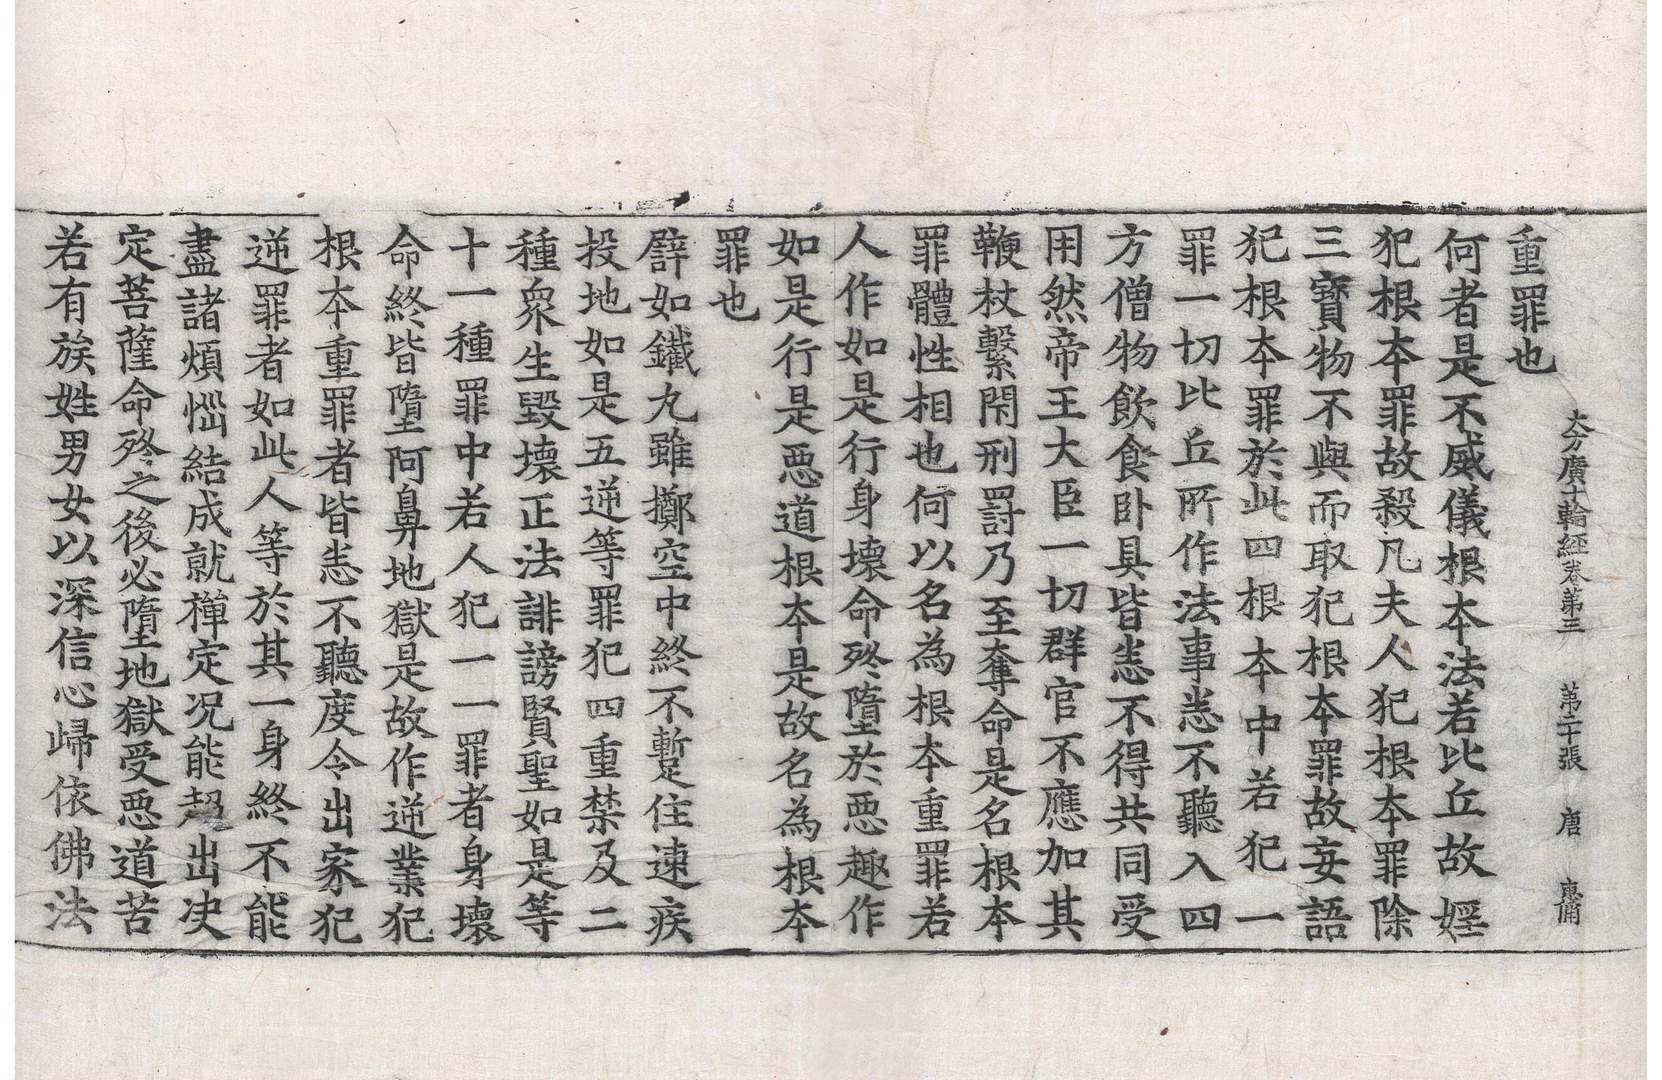 大方廣十輪經卷第三 第二十張 唐 惠甫
重罪也
何者是不威儀根本法若比丘故婬
犯根本罪故殺凡夫人犯根本罪除
三寶物不與而取犯根本罪故妄語
犯根本罪於此四根本中若犯一一
罪一切比丘所作法事悉不聽入四
方僧物飲食卧具皆悉不得共同受
用然帝王大臣一切群官不應加其
鞭杖繫閇刑罸乃至奪命是名根本
罪體性相也何以名為根本重罪若
人作如是行身壞命終墮於惡趣作
如是行是惡道根本是故名為根本
罪也
譬如鐵丸雖擲空中終不暫住速疾
投地如是五逆等罪犯四重禁及二
種衆生毀壞正法誹謗賢聖如是等
十一種罪中若人犯一一罪者身壞
命終皆墮阿鼻地獄是故作逆業犯
根本重罪者皆悉不聽度令出家犯
逆罪者如此人等於其一身終不能
盡諸煩惱結成就禪定况能趣出决
定菩薩命終之後必墮地獄受惡道苦
若有族姓男女以深信心歸依佛法